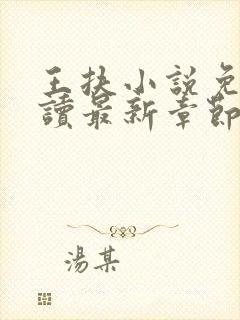 王扶小說免
讀最新章節
湯某